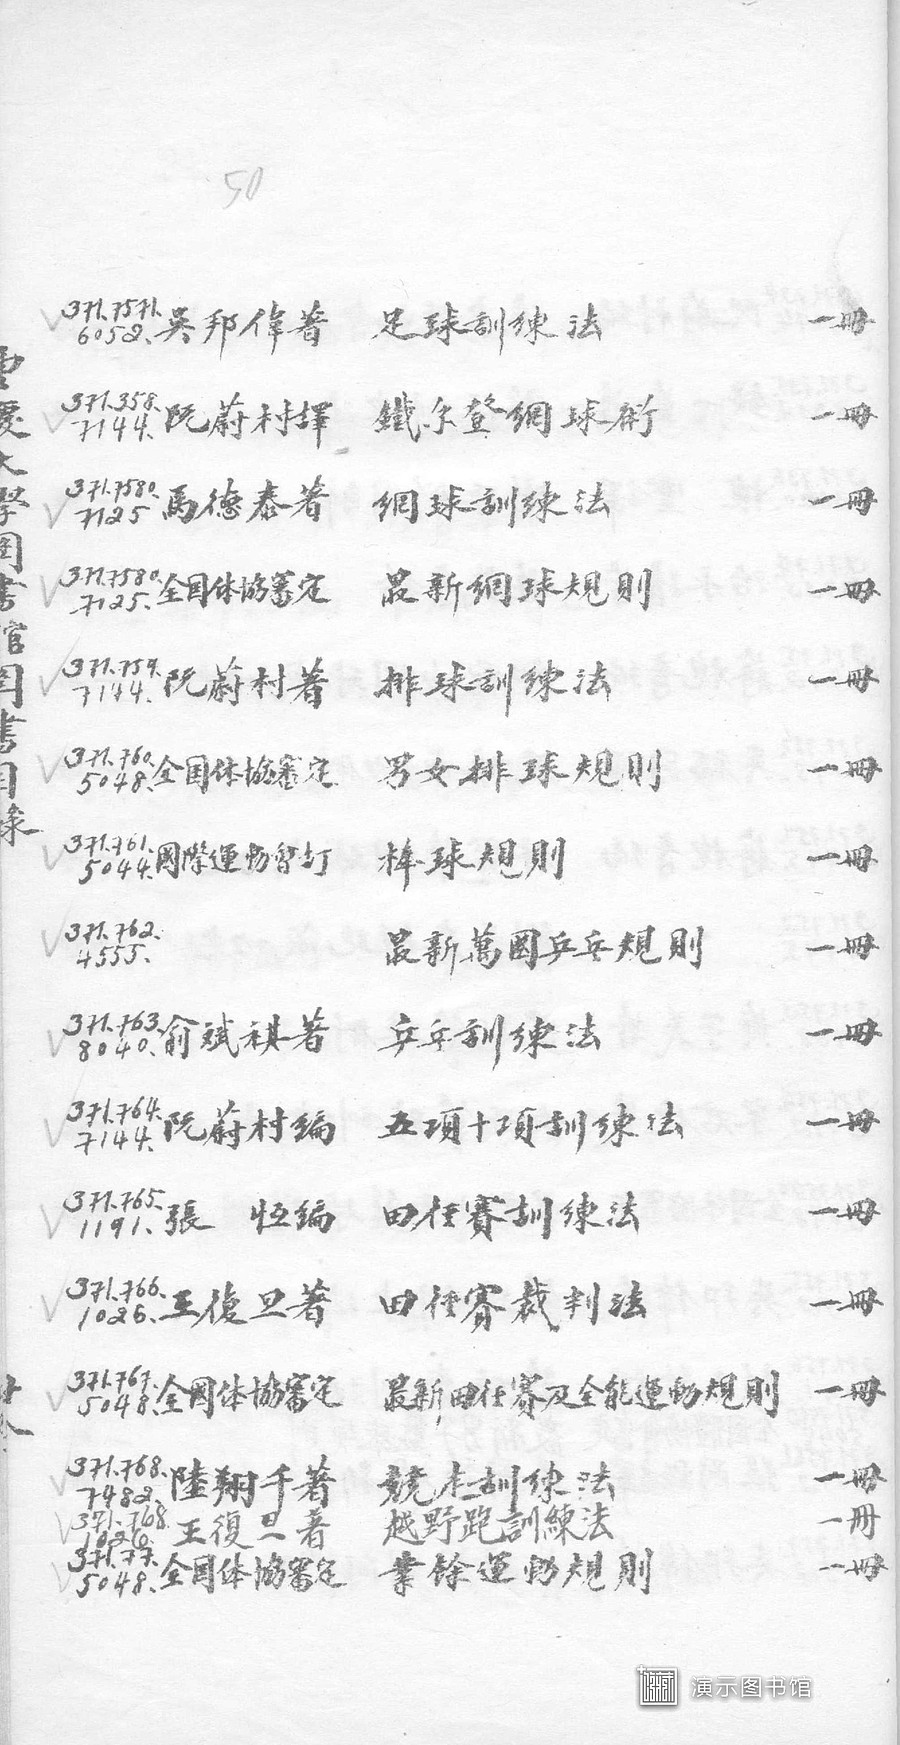 50
371.7571. 6052. 吳邦偉著 足球訓練法 一冊
371.358. 7144. 阮蔚村譯 鐵尔登網球術 一冊
371.7580. 7125 馬德泰著 網球訓練法 一冊
371.7580. 7125. 全国体協審定 最新網球規則 一冊
371.759. 7144. 阮蔚村著 排球訓練法 一冊
371.760. 5048. 全国体協審定 男女排球規則 一冊
371.761. 5044. 國際運動會訂 棒球規則 一冊
371.762. 4555. 最新萬國乒乓規則 一冊
371.763. 8040. 俞斌祺著 乒乓訓練法 一冊
371.764. 7144. 阮蔚村編 五項十項訓練法 一冊
371.765. 1191. 張恒編 田徑賽訓練法 一冊
371.766. 1026. 王復旦著 田徑賽裁判法 一冊
371.767. 5048 全國体協審定 最新田徑賽及全能運動規則 一冊
371.768. 7482. 陸翔千著 競走訓練法 一冊
371.768. 1026. 王復旦著 越野跑訓練法 一冊
371.77. 5048. 全国体協審定 業餘運動規則 一冊
大學圖書館圖書目錄
演示图书馆